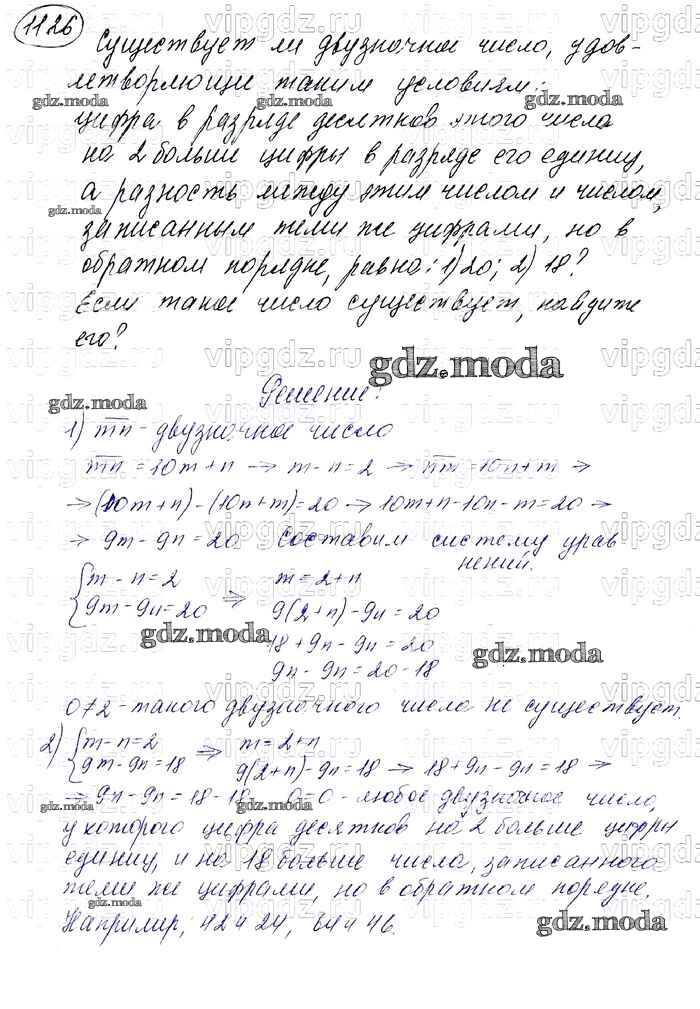 1126
Существует ли двузначное число, удов-
летворяющие таким условиям:
gdz.moda
gdz.moda
цифра в разряде десятков этого числа
на 2 больше цифры в разряде его единиц,
а разность между этим числом и числом,
gdz.moda
записанным теми же цифрами, но в
обратном порядке, равна: 1) 20; 2) 18?
Если такое число существует, найдите
его?
gdz.moda
Решение:
gdz.moda
1) mn - двузначное число
mn = 10m + n → m - n = 2 → nm = 10n + m ⇒
→ (10m + n) - (10n + m) = 20 → 10m + n - 10n - m = 20 →
→ 9m - 9n = 20. Составим систему урав
нений.
{ m - n = 2
9m - 9n = 20 ⇒
m = 2 + n
9(2 + n) - 9n = 20
18 + 9n - 9n = 20
9n - 9n = 20 - 18
gdz.moda
gdz.moda
0 ≠ 2 - такого двузначного числа не существует.
2) { m - n = 2
9m - 9n = 18 ⇒
m = 2 + n
9(2 + n) - 9n = 18 → 18 + 9n - 9n = 18 ⇒
→ 9n - 9n = 18 - 18 0 = 0 - любое двузначное число,
gdz.moda
gdz.moda
у которого цифра десятков на 2 больше цифры
единиц, и на 18 больше числа, записанного
теми же цифрами, но в обратном порядке.
gdz.moda
Например, 42 и 24, 64 и 46.
gdz.moda
vipgdz.ru